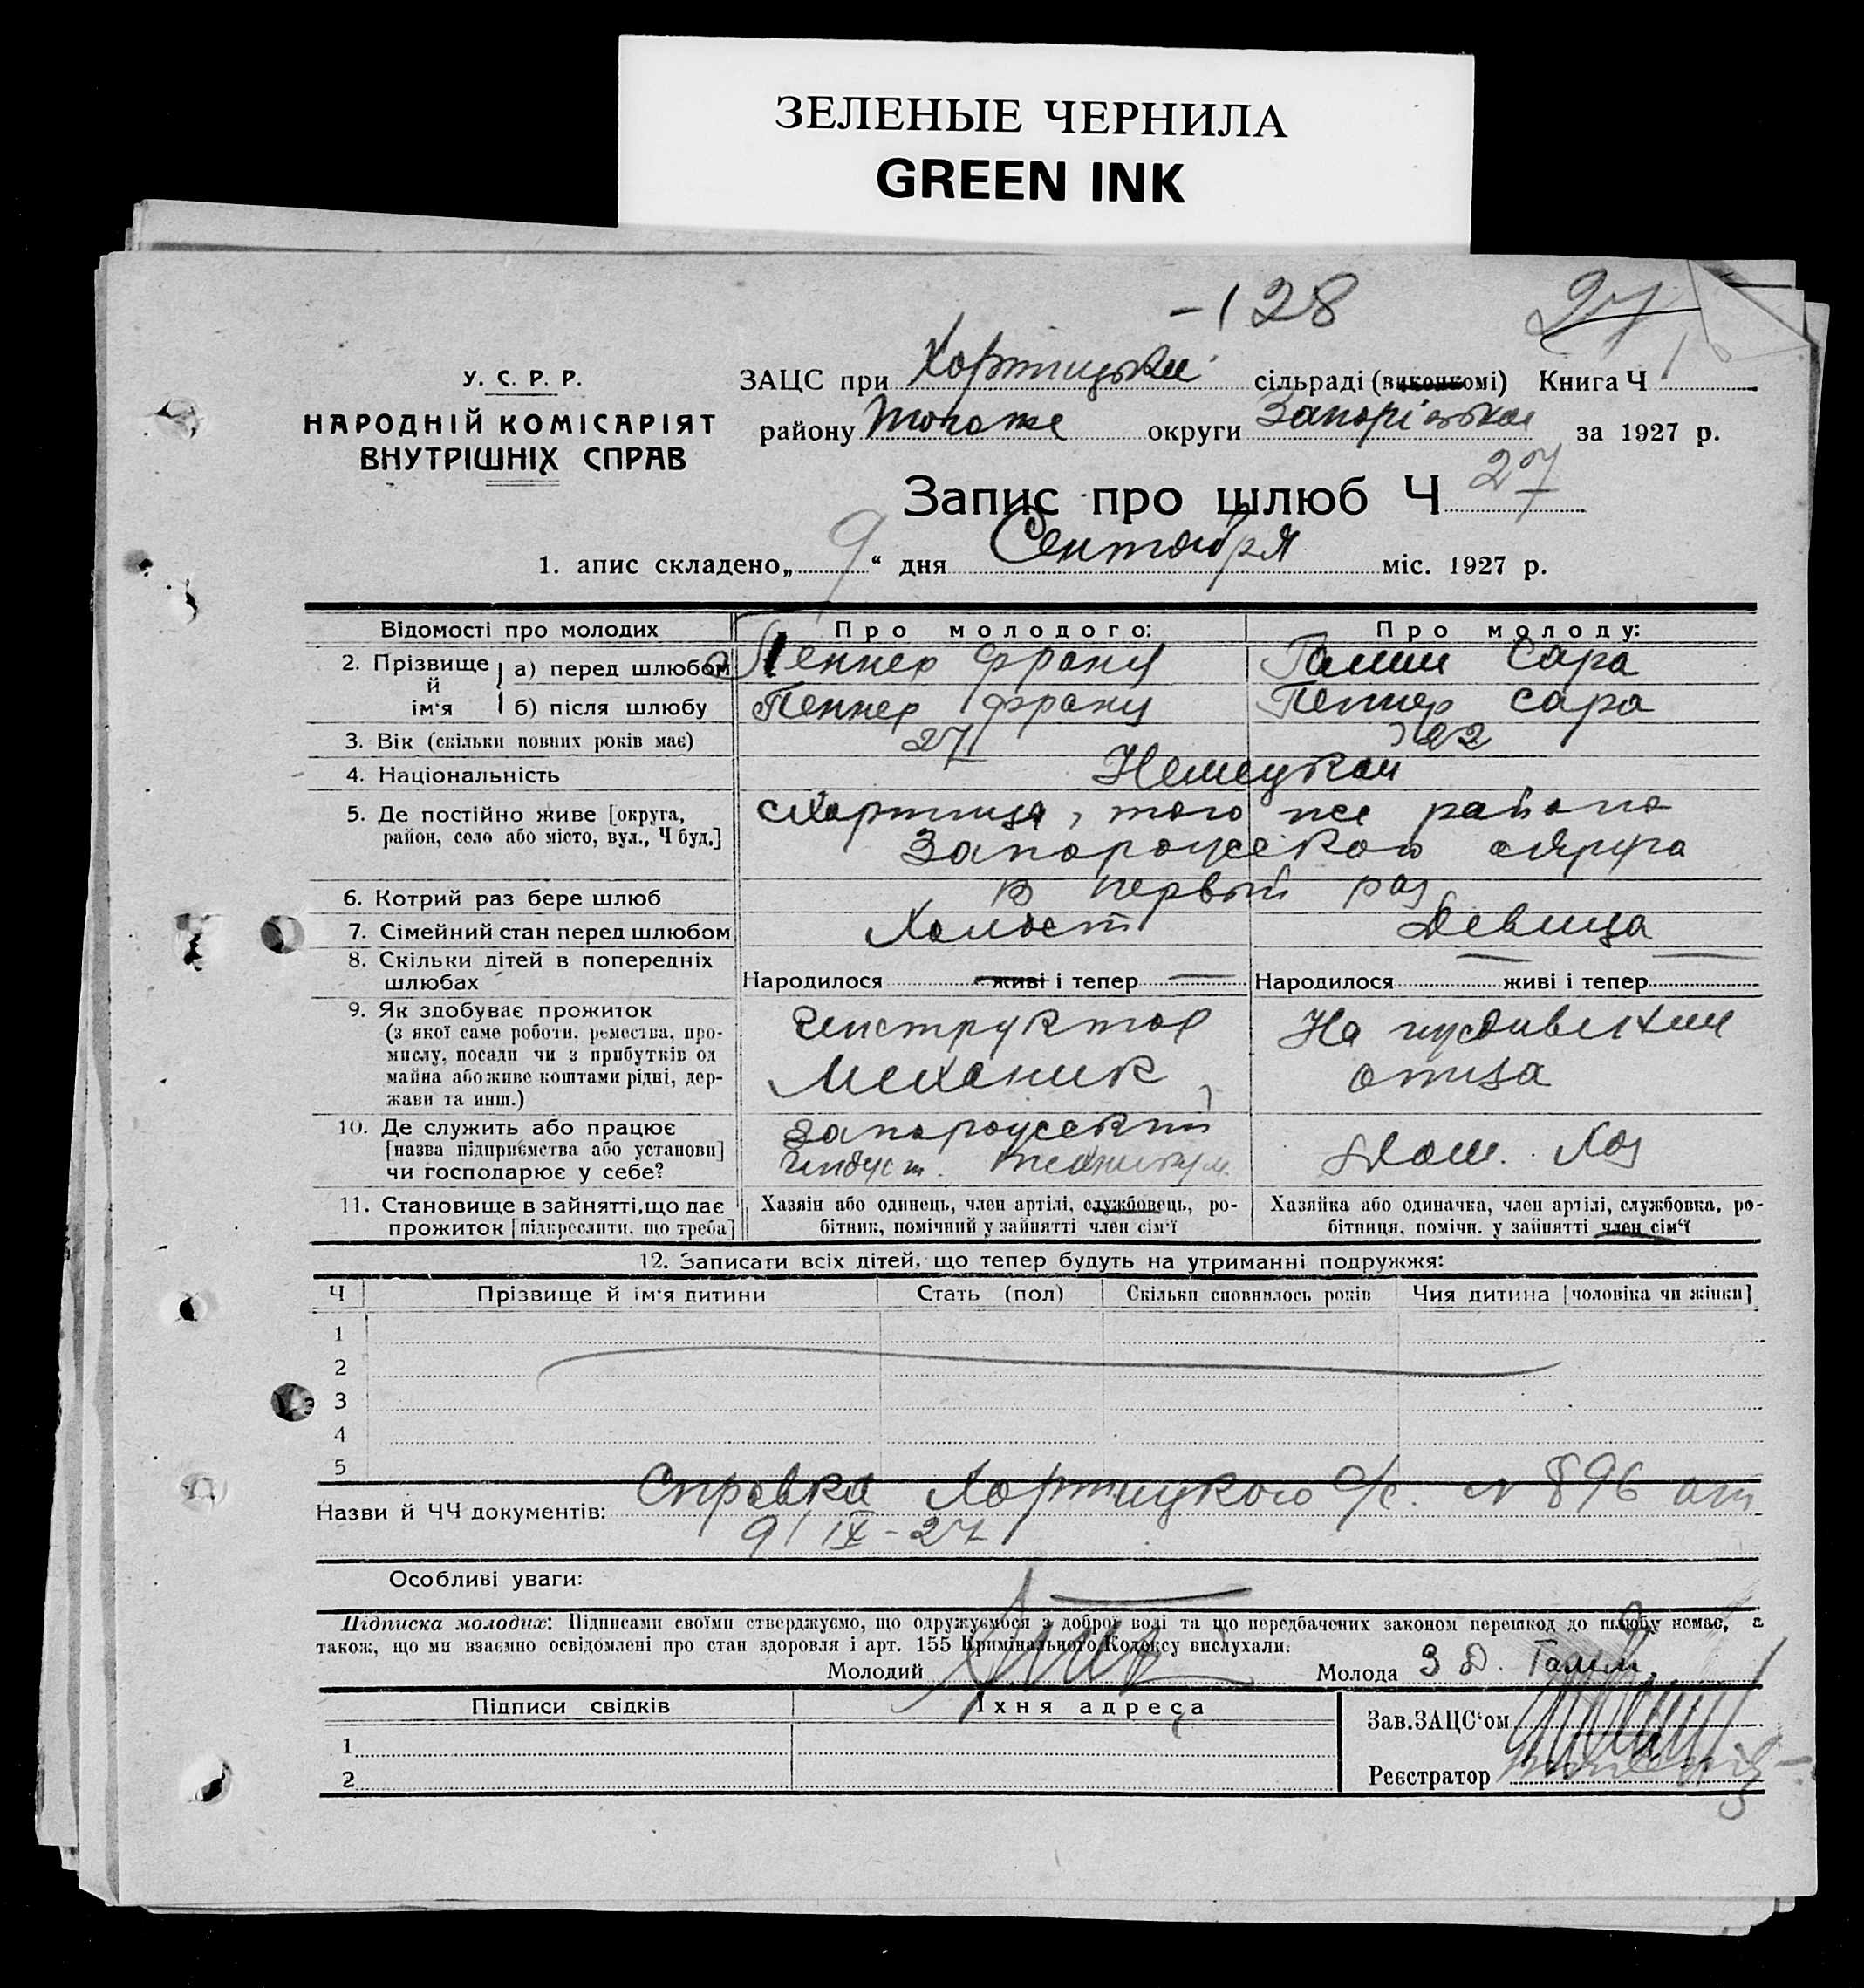 ЗЕЛЕНЫЕ ЧЕРНИЛА
GREEN INK
-128
27
У. С. Р. Р.
НАРОДНІЙ КОМІСАРІЯТ
ВНУТРІШНІХ СПРАВ
ЗАЦС при Хортицькій сільраді (виконкомі) Книга Ч 1
району того же округи Запорізька за 1927 р.
Запис про шлюб Ч 27
1. апис складено „ 9 “ дня Сентября міс. 1927 р.
Відомості про молодих Про молодого: Про молоду:
2. Прізвище й ім'я а) перед шлюбом Пеннер Франц Сара
б) після шлюбу Пеннер Франц Пеннер Сара
3. Вік (скільки повних років має) 27 22
4. Національність Немецкой
5. Де постійно живе [округа, район, село або місто, вул., Ч буд.] с Хортица, того же района
Запорожской округа
6. Котрий раз бере шлюб в первый раз
7. Сімейний стан перед шлюбом Холост Девица
8. Скільки дітей в попередніх шлюбах Народилося живі і тепер Народилося живі і тепер
9. Як здобуває прожиток
(з якої саме роботи, ремества, про-
мислу, посади чи з прибутків од
майна або живе коштами рідні, дер-
жави та инш.)
Инструктор
Механик
На иждивении
отца
10. Де служить або працює
[назва підприємства або установи]
чи господарює у себе?
Запорожский
Индуст. техникум.
Дом. Хоз
11. Становище в зайнятті, що дає
прожиток [підкреслити, що треба]
Хазяін або одинець, член артілі, службовець, ро-
бітник, помічний у зайнятті член сім'ї
Хазяйка або одиначка, член артілі, службовка, ро-
бітниця, помічн. у зайнятті член сім'ї
12. Записати всіх дітей, що тепер будуть на утриманні подружжя:
Ч Прізвище й ім'я дитини Стать (пол) Скільки сповнилось років Чия дитина [чоловіка чи жінки]
1
2
3
4
5
Назви й ЧЧ документів: Справка Хортицкого с/с. N 896 от
9/IX-27
Особливі уваги:
Підписка молодих: Підписами своїми стверджуємо, що одружуємося з доброї волі та що передбачених законом перешкод до шлюбу немає, а
також, що ми взаємно освідомлені про стан здоровля і арт. 155 Кримінального Кодексу вислухали.
Молодий Молода З Д. Гамм.
Підписи свідків Їхня адреса
1
2
Зав. ЗАЦС'ом
Реєстратор